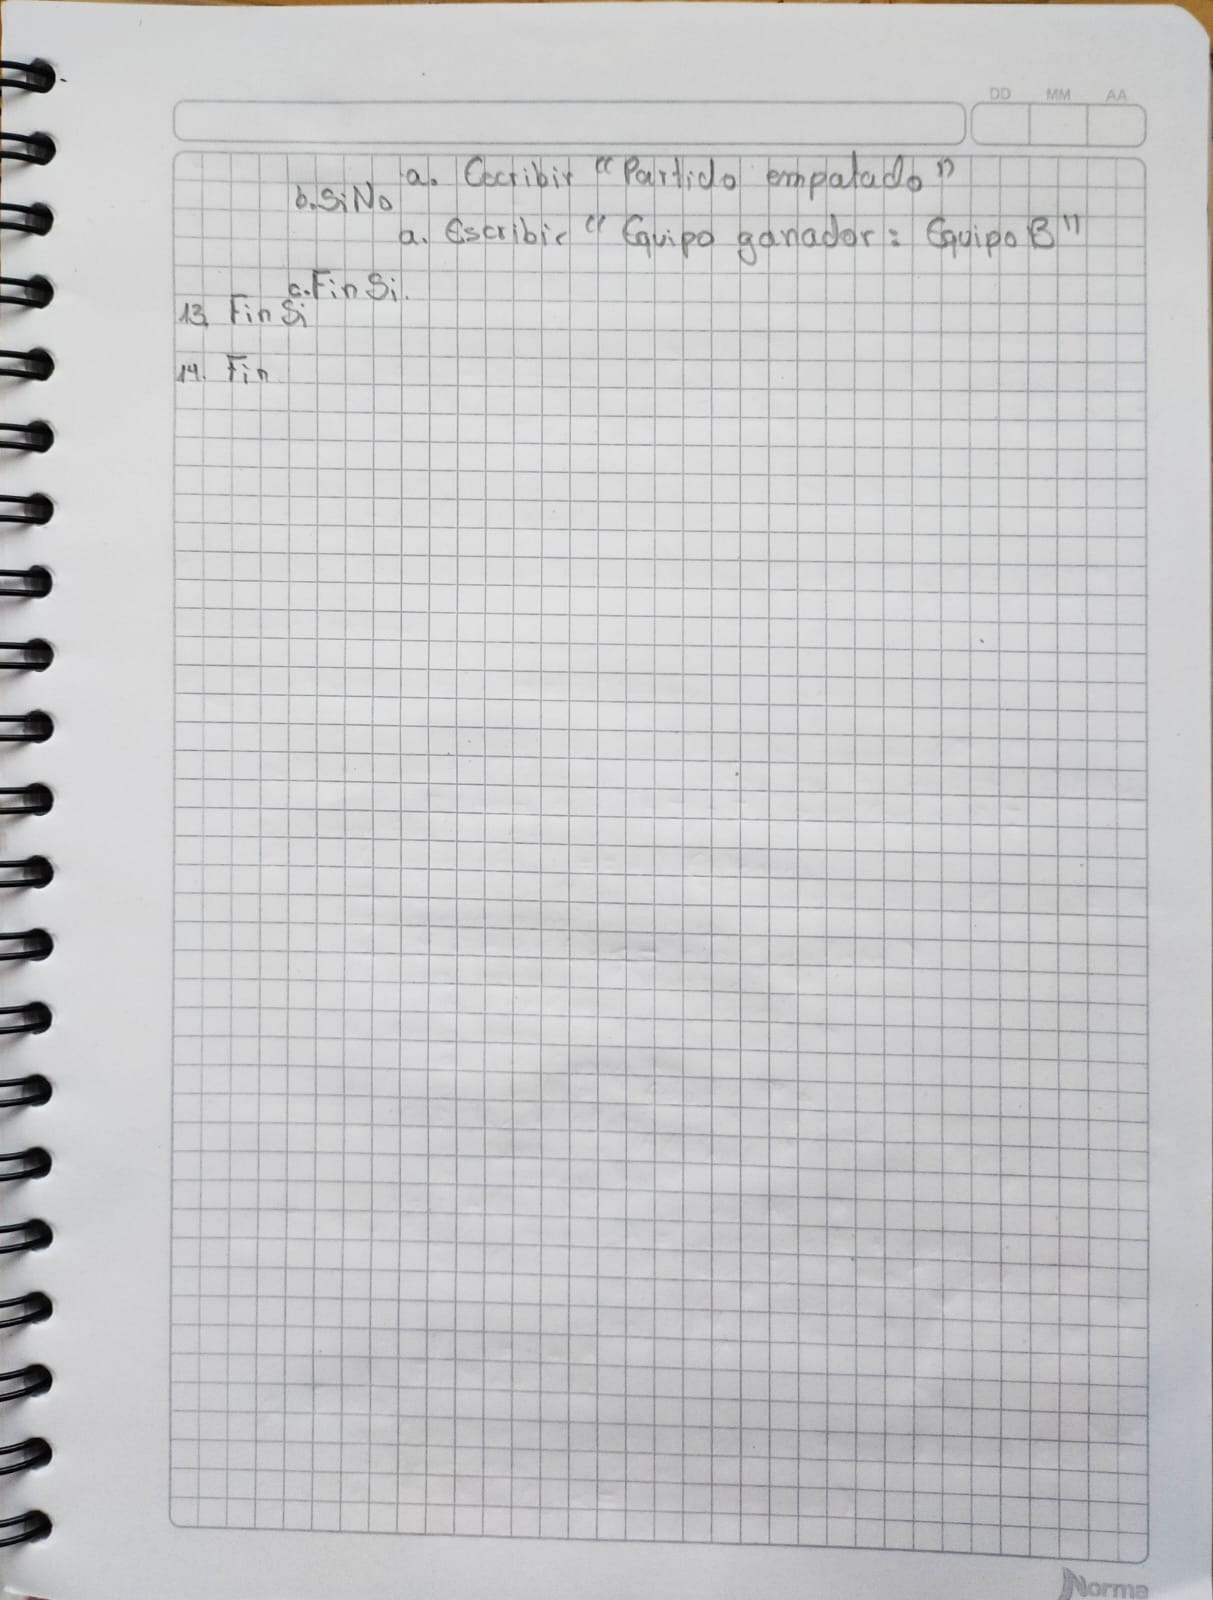 DD MM AA
a. Escribir "Partido empatado"
b. SiNo
a. Escribir "Equipo ganador: Equipo B"
c. Fin Si.
13. Fin Si
14. Fin
Norma